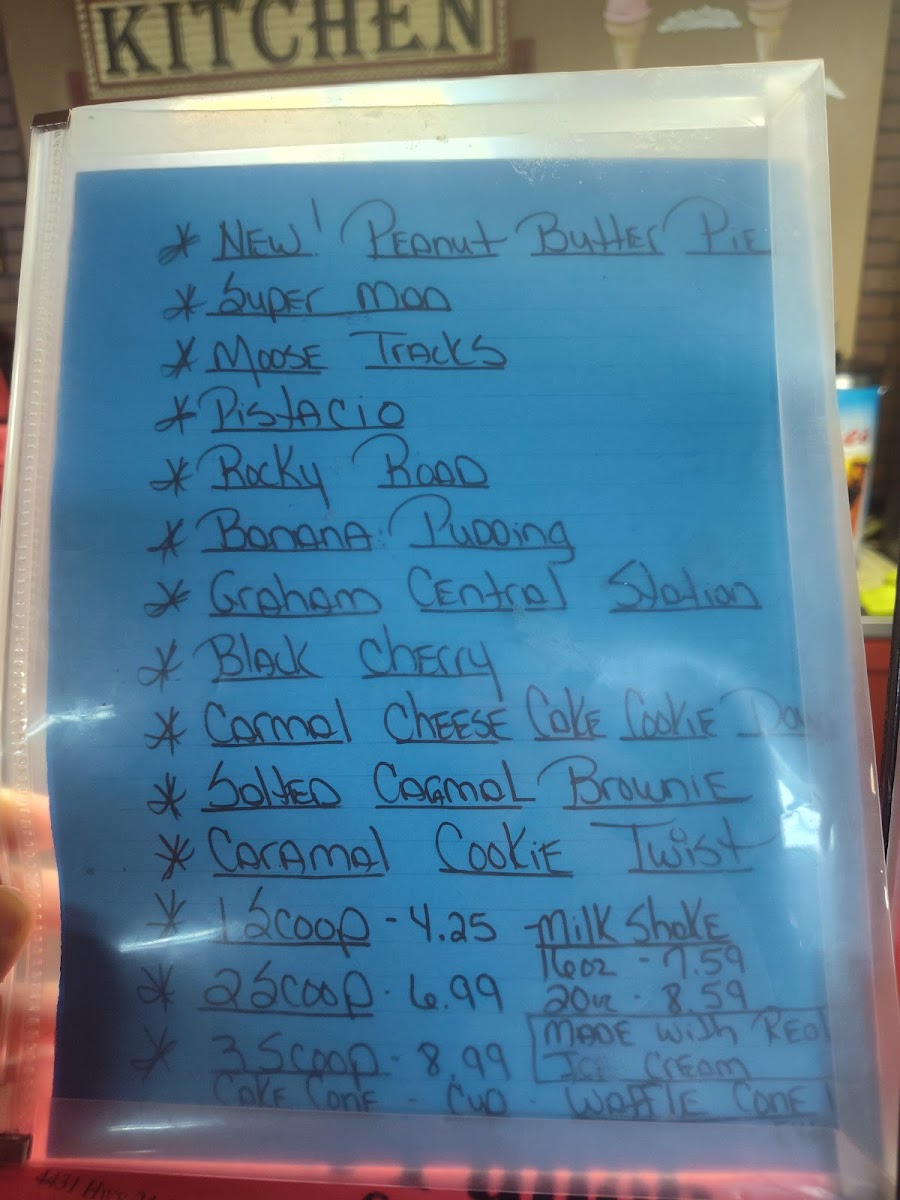 KITCHEN
* NEW! PEANUT BUTTER PIE
* SUPER MAN
* MOOSE TRACKS
* PISTACIO
* ROCKY ROAD
* BANANA PUDDING
* GRAHAM CENTRAL STATION
* BLACK CHERRY
* CARMEL CHEESE CAKE COOKIE
* SALTED CARAMEL BROWNIE
* CARAMEL COOKIE TWIST
* 1 SCOOP - 4.25 MILK SHAKE
16 oz - 7.59
* 2 SCOOP - 6.99 20 oz - 8.59
MADE WITH REAL
* 3 SCOOP - 8.99 ICE CREAM
CAKE CONE - CUP - WAFFLE CONE